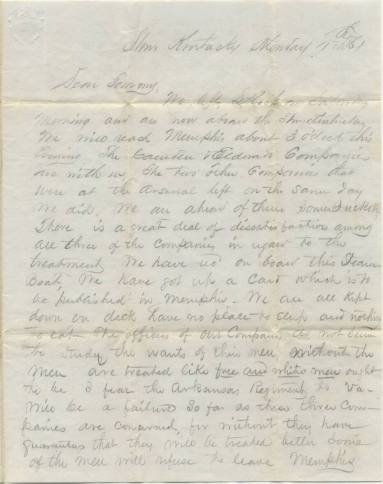 Str Kentucky Monday
Dear Tommy,
We left on
Morning and are now aboard the Str Kentucky
We will reach Memphis about 3 o'clock this
Evening. The Camden & Eldorado Companies
are with us. The two other Companies that
were at the Arsenal left on the same day
We did. We are ahead of them
There is a great deal of dissatisfaction among
all three of the Companies in regard to the
treatment We have on board this Steam
Boat. We have got up a Card which is to
be published in Memphis. We are all kept
down on deck have no place to sleep and nothing
to eat The officers of our Company do not seem
to study the wants of their men. Without the
Men are treated like free and white men ought
to be I fear the Arkansas Regiment to Va.
Will be a failure So far as these three Com-
panies are concerned, for without they have
guarantees that they will be treated better Some
of the men will refuse to leave Memphis